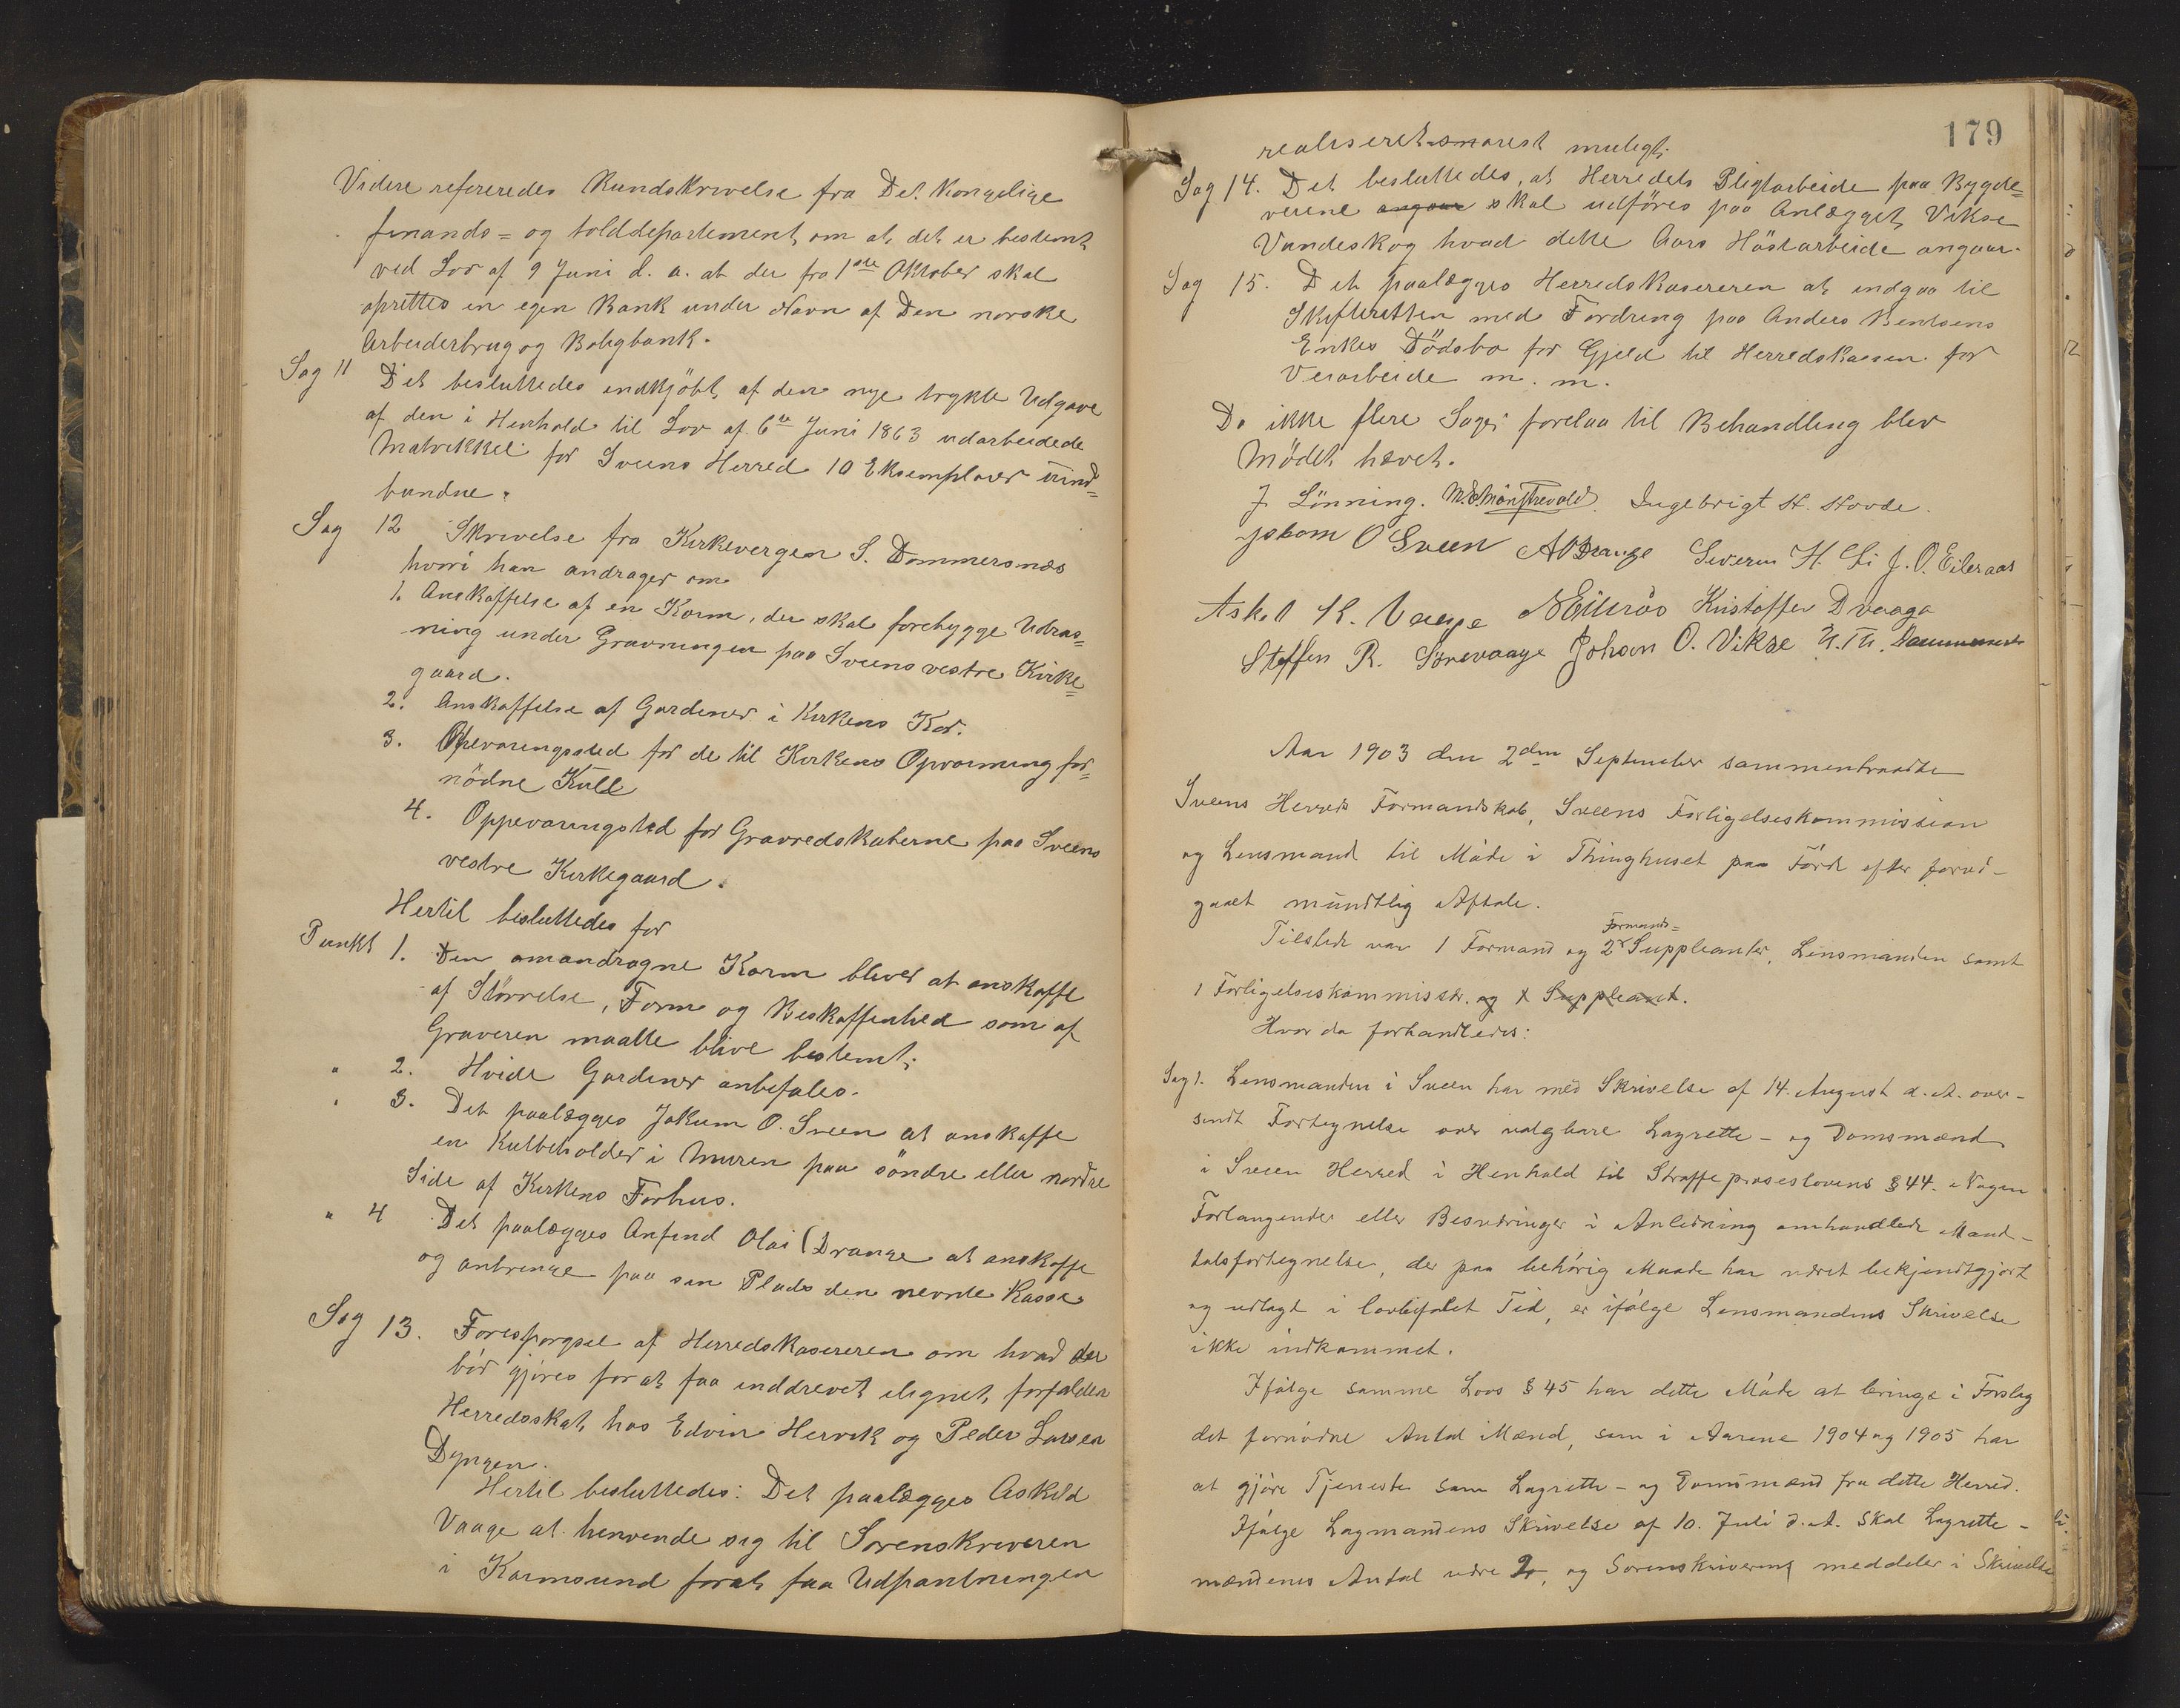 Videre refereredes Rundskrivelse fra Det Kongelige
finands= og tolddepartement, om at det er bestemt
ved Lov af 9 Juni d. a. at der fra 1ste Oktober skal
oprettes en egen Bank under Navn af Den norske
Arbeiderbrug og Boligbank.
Sag 11 Det besluttedes indkjöbt af den nye trykte Udgave
af den i Henhold til Lov af 6te Juni 1863 udarbeidede
Matrikkel for Sveens Herred 10 Eksemplarer uind=
bundne.
Sag 12 Skrivelse fra Kirkevergen S. Dommersnæs
hvori han andrager om
1. Anskaffelse af en Karm, der skal forebygge Udras=
ning under Gravningen paa Sveens vestre Kirke=
gaard.
2. Anskaffelse af Gardiner i Kirkens Kor.
3. Opevaringssted for de til Kirkens Opvarmning for=
nödne Kull
4. Oppevaringsted for Gravredskaberne paa Sveens
vestre Kirkegaard.
Hertil besluttedes for
Punkt 1. Den omandragne Karm bliver at anskaffe
af Störrelse, Form og Beskaffenhed som af
Graveren maatte blive bestemt.
" 2. Hvide Gardiner anbefales.
" 3. Det paalægges Jakum O. Sveen at anskaffe
en Kulbeholder i Muren paa söndre eller nordre
Side af Kirkens Forhus.
" 4 Det paalægges Anfind Olai Drange at anskaffe
og anbringe paa sin Plads den nevnte Kasse
Sag 13. Foresporgsel af Herredskasereren om hvad der
bör gjöres for at faa inddrevet ilignet, forfalden
Herredsskat hos Edvin Hervik og Peder Larsen
Dyngen.
Hertil besluttedes: Det paalægges Askild
Vaage at henvende sig til Sorenskriveren
i Karmsund forat faa Udpantningen
179
realiseret snarest muligt.
Sag 14. Det besluttedes, at Herredets Pligtarbeide paa Bygde=
veiene angaar skal udföres paa Anlægget Vikse
Vandeskog hvad dette Aars Höstarbeide angaar.
Sag 15. Det paalægges Herredskasereren at indgaa til
Skifteretten med Fordring paa Anders Bentsens
Enkes Dödsbo for Gjeld til Herredskassen for
Veiarbeide m. m.
Da ikke flere Sager forelaa til Behandling blev
Mödet hævet.
J. Lönning. Ingebrigt H. Hovde.
Jakom O Sveen AO Drange Severin H. Li J. O. Eileraas
Askel K. Vaage N Eileraas Kristoffer Dvaaga
Steffen R. Sörevaage Johan O. Vikse
Aar 1903 den 2den September sammentraadte
Sveens Herreds Formandskab, Sveens Forligelseskommission
og Lensmand til Möde i Thinghuset paa Förde efter forud-
gaaet mündtlig Aftale.
Tilstede var 1 Formand og 2 Formands= Suppleanter, Lensmanden samt
1 Forligelseskommissær. og 1 Suppleant.
Hvor da forhandledes:
Sag 1. Lensmanden i Sveen har med Skrivelse af 14. August d. A. over-
sendt Fortegnelse over valgbare Lagrette- og Domsmænd
i Sveen Herred i Henhold til Straffeproseslovens § 44. Nogen
Forlangender eller Besværinger i Anledning omhandlede Mand-
talsfortegnelse, der paa behörig Maade har været bekjendtgjort
og udlagt i lovbefalet Tid, er ifölge Lensmandens Skrivelse
ikke indkommet.
Ifölge samme Lovs § 45 har dette Möde at bringe i Forslag
det fornödne Antal Mænd, som i Aarene 1904 og 1905 har
at gjöre Tjeneste som Lagrette- og Domsmænd fra dette Herred.
Ifölge Lagmandens Skrivelse af 10. Juli d. A. skal Lagrette-
mændenes Antal være 2, og Sorenskriveren meddeler i Skrivelse